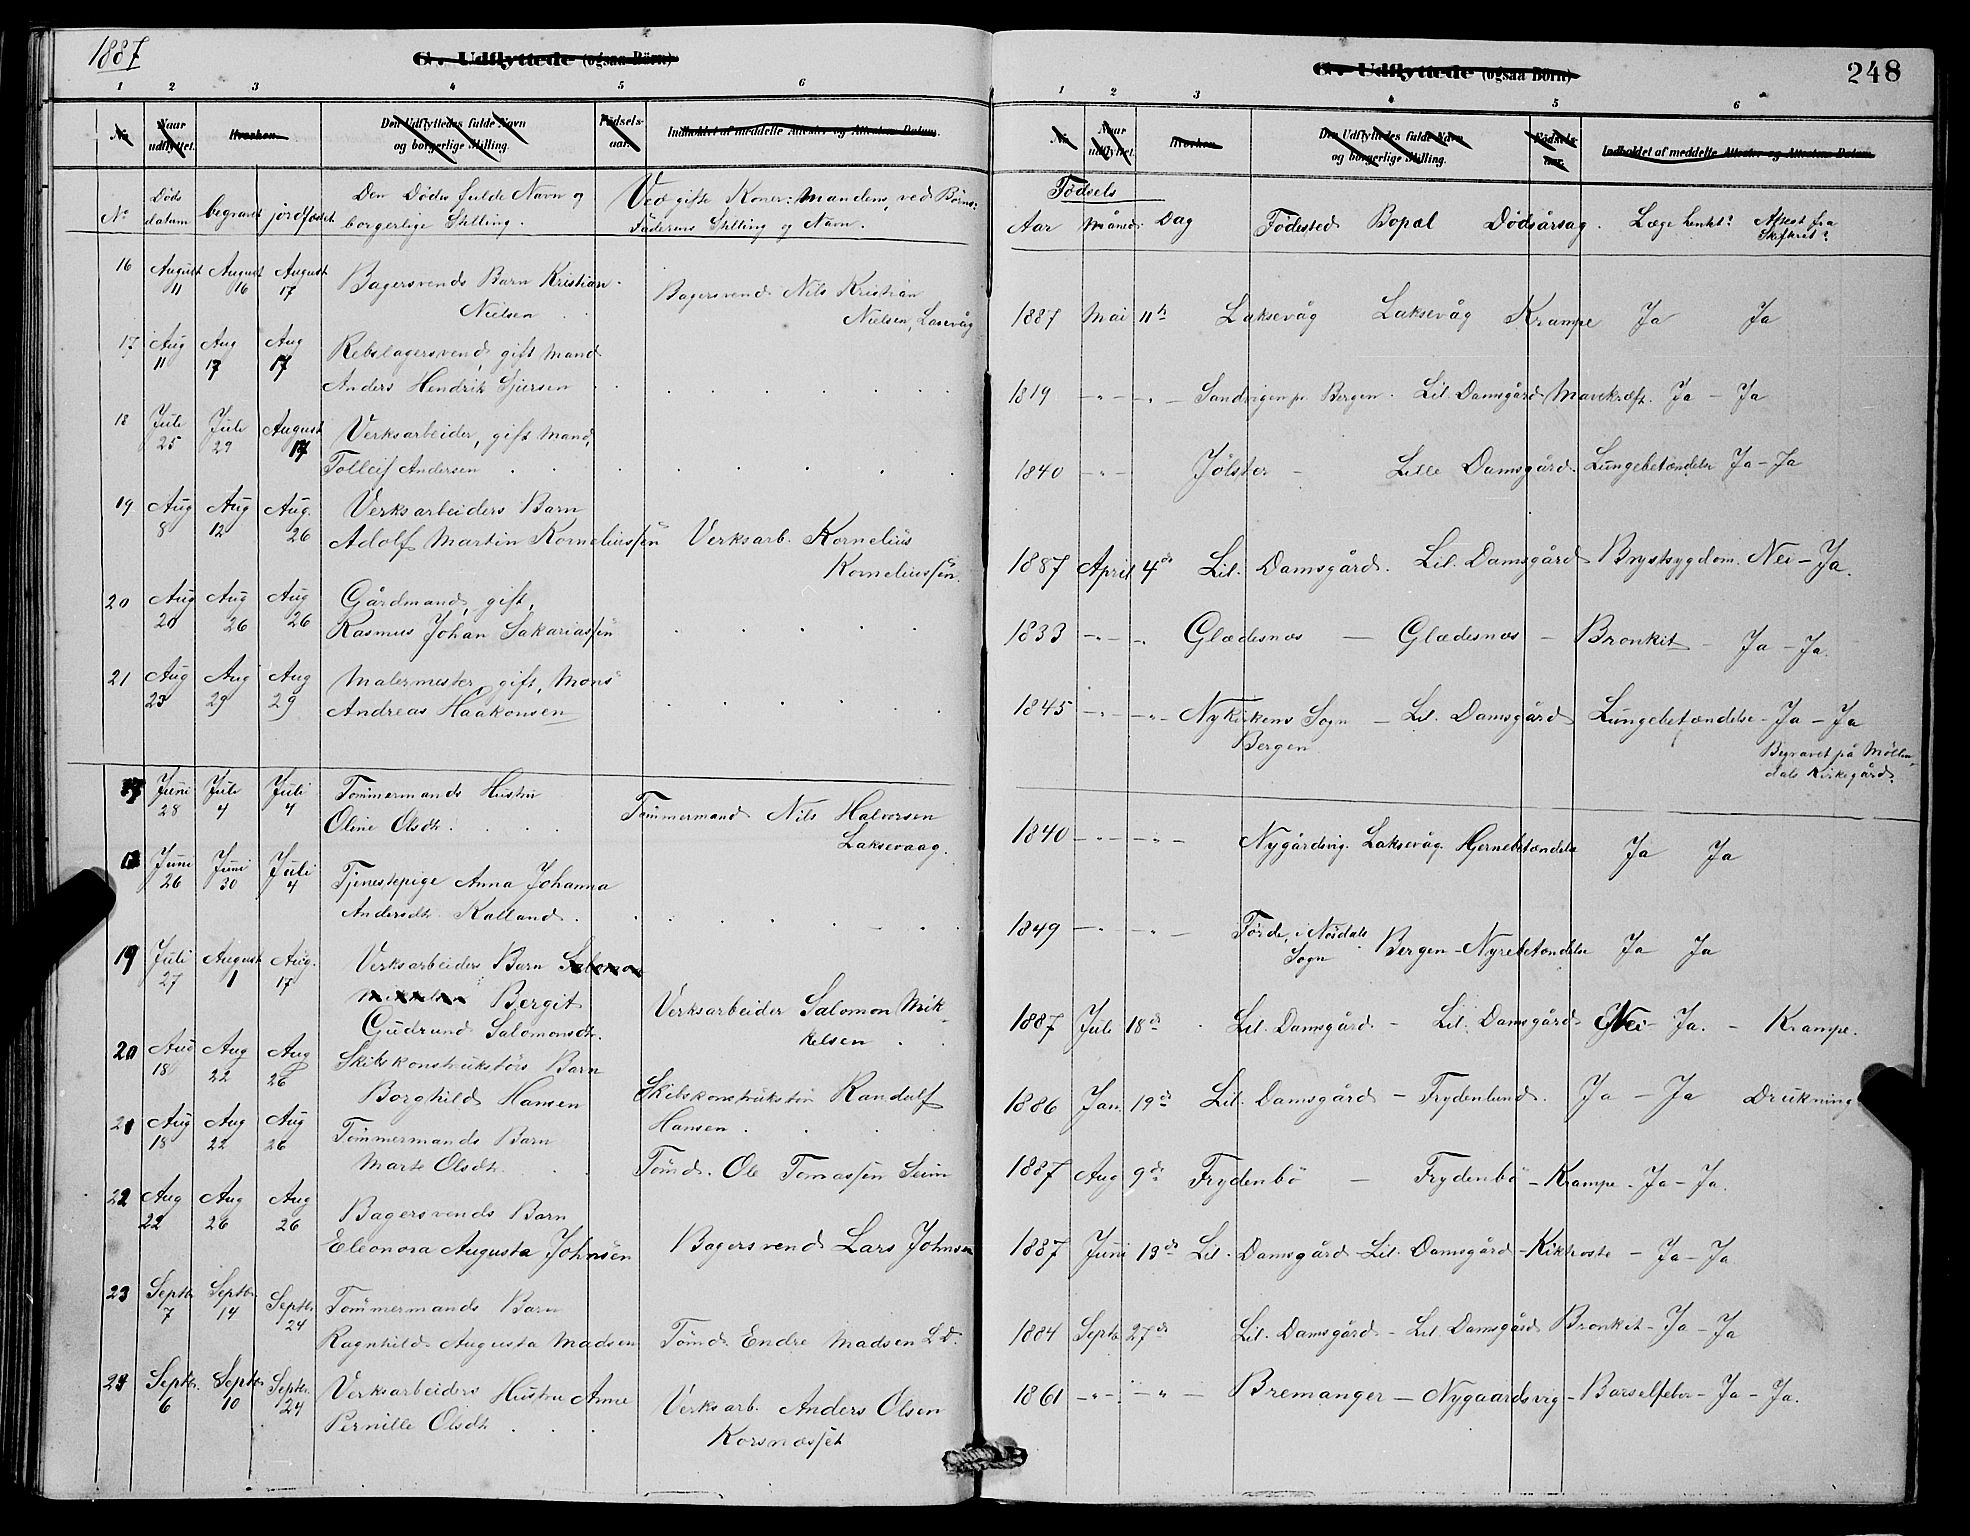 1887
G. Udflyttede (ogsaa Børn)
1 2 3 4 5 6
No. Naar udflyttet. Hvorhen. Den Udflyttedes fulde Navn og borgerlige Stilling. Fødselsaar. Indholdet af meddelte Attester og Attestens Datum.
No Døds datum begravet jordfæstet Den Dødes fulde Navn og borgerlige Stilling. Ved gifte Koner: Mandens, ved Børn: Faderens Stilling og Navn.
16 August 11 August 16 August 17 Bagersvends Barn Kristian Nielsen Bagersvend Nils Kristian Nielsen, Laxevåg
17 Aug 11 Aug 17 Aug 17 Rebslagersvend, gift Mand Anders Hendrik Sjursen
18 Juli 25 Juli 29 August 17 Verksarbeider, gift Mand, Tolleif Andersen
19 Aug 8 Aug 12 Aug. 26 Verksarbeiders Barn Adolf Martin Korneliussen Verksarb. Kornelius Korneliussen.
20 Aug 20 Aug 26 Aug 26 Gårdmand, gift, Rasmus Johan Sakariassen
21 Aug 23 Aug 29 Aug 29 Malermester, gift, Mons Andreas Haakonsen
17 Juni 28 Juli 4 Juli 4 Tømmermands Hustru Oline Olsdtr. Tømmermand Nils Halvorsen Laksevaag.
18 Juni 26 Juni 30 Juli 4 Tjenestepige Anna Johanna Andersdtr. Kalland.
19 Juli 27 August 1 Aug. 17 Verksarbeiders Barn Salomon Mikkelsen Bergit Gudrund Salomonsdtr. Verksarbeider Salomon Mikkelsen
20 Aug 18 Aug 22 Aug 26 Skibskonstruktørs Barn Borghild Hansen Skibskonstruktør Randulf Hansen.
21 Aug 18 Aug 22 Aug 26 Tømmermands Barn Marte Olsdtr. Tømd. Ole Tomassen Seim
22 Aug 22 Aug 26 Aug 26 Bagersvends Barn Eleonora Augusta Johnsen Bagersvend Lars Johnsen
23 Septbr. 7 Septbr. 14 Septbr. 24 Tømmermands Barn Ragnhild Augusta Madsen Tømd. Endre Madsen L.D.
24 Septbr. 6 Septbr. 10 Septbr. 24 Verksarbeiders Hustru Anne Pernille Olsdtr. Verksarb. Anders Olsen Korsnæsset
G. Udflyttede (ogsaa Børn)
248
1 2 3 4 5 6
No. Naar udflyttet. Hvorhen. Den Udflyttedes fulde Navn og borgerlige Stilling. Fødselsaar. Indholdet af meddelte Attester og Attestens Datum.
Fødsels
Aar Måned Dag Fødested Bopæl Dødsårsag. Læge henkt? Attest fra Skifteret?
1887 Mai 11te Laksevåg Laksevåg Krampe Ja Ja
1819 Sandvigen pr. Bergen. Lil. Damsgård Mavekræft. Ja - Ja
1840 Jølster - Lille Damsgård. Lungebetændelse Ja - Ja
1887 April 4de Lil. Damsgård. Lil. Damsgård Brystsygdom. Nei - Ja.
1833 Glædesnæs - Glædesnæs - Bronkit - Ja - Ja.
1845 Nykirkens Sogn Bergen - Lil. Damsgård Lungebetændelse - Ja - Ja
Begravet på Møllendals Kirkegård.
1840 Nygårdsvig. Laksevåg Hjernebetændelse Ja Ja
1849 Førde, i Nøsdals Sogn Bergen - Nyrebetændelse Ja Ja
1887 Juli 18de Lil. Damsgård - Lil. Damsgård Nei - Ja. - Krampe.
1886 Jan. 19de Lil. Damsgård - Frydenlund. Ja - Ja Drukning
1887 Aug 9de Frydenbø - Frydenbø - Krampe - Ja - Ja.
1887 Juni 13de Lil. Damsgård - Lil. Damsgård - Kikhoste - Ja - Ja
1884 Septb. 27de Lil. Damsgård - Lil. Damsgård Bronkit - Ja - Ja
1861 Bremanger - Nygaardsvig - Barselfeber - Ja - Ja.